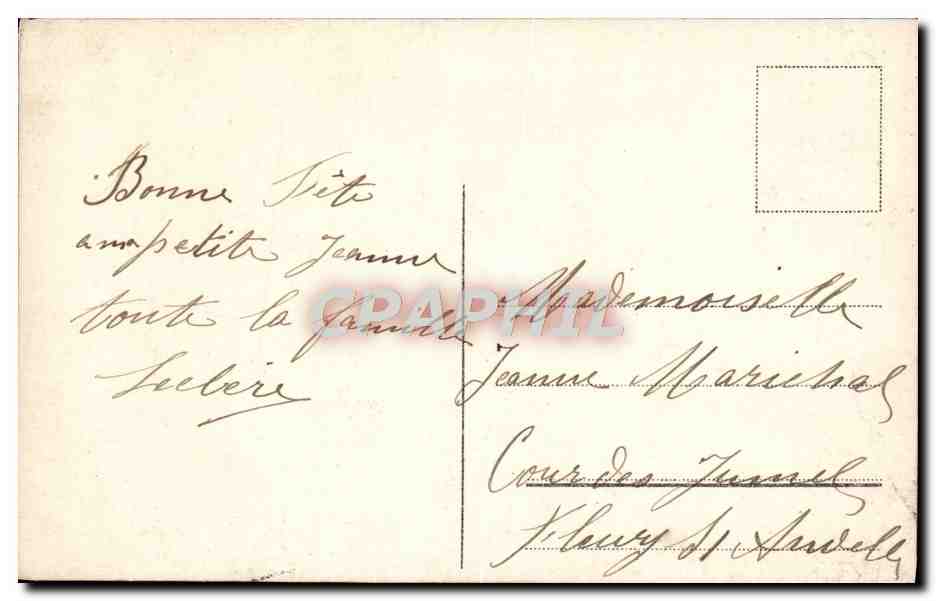 Bonne Fête
a ma petite Jeanne
toute la famille
CPAPHIL
Mademoiselle
Jeanne Marichal
Cour des Jumel
Fleury S/ Andelle